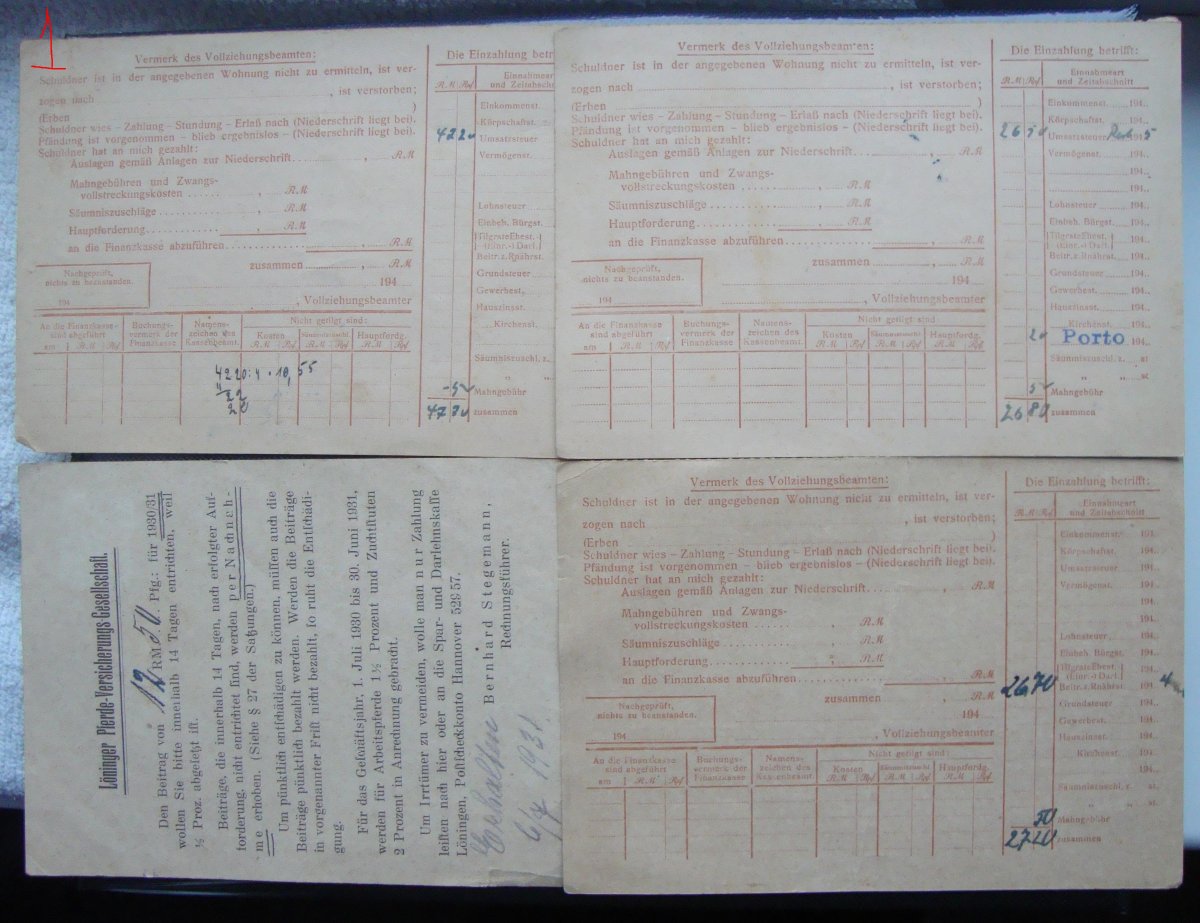 1
Vermerk des Vollziehungsbeamten:
Schuldner ist in der angegebenen Wohnung nicht zu ermitteln, ist ver-
zogen nach , ist verstorben;
(Erben )
Schuldner wies – Zahlung – Stundung – Erlaß nach (Niederschrift liegt bei).
Pfändung ist vorgenommen – blieb ergebnislos – (Niederschrift liegt bei).
Schuldner hat an mich gezahlt:
Auslagen gemäß Anlagen zur Niederschrift , RM
Mahngebühren und Zwangs-
vollstreckungskosten , RM
Säumniszuschläge , RM
Hauptforderung , RM
an die Finanzkasse abzuführen , RM
zusammen , RM
Nachgeprüft,
nichts zu beanstanden.
194
194
, Vollziehungsbeamter
An die Finanzkasse
sind abgeführt
am RM Rpf
Buchungs-
vermerk der
Finanzkasse
Namens-
zeichen des
Kassenbeamt.
Nicht getilgt sind:
Kosten
RM Rpf
Säumniszuschl.
RM Rpf
Hauptfordg.
RM Rpf
4220:4 = 10,55
22
20
Die Einzahlung betrifft:
RM Rpf
Einnahmeart
und Zeitabschnitt
Einkommenst.
Körperschaft.
4220 Umsatzsteuer
Vermögenst.
Lohnsteuer
Einbeh. Bürgst.
Tilgrate Ehest.
(Einr.-) Darl.
Beitr. z. Rnährst.
Grundsteuer
Gewerbest.
Hauszinsst.
Kirchenst.
Säumniszuschl. z.
„ „
Mahngebühr
zusammen
Vermerk des Vollziehungsbeamten:
Schuldner ist in der angegebenen Wohnung nicht zu ermitteln, ist ver-
zogen nach , ist verstorben;
(Erben )
Schuldner wies – Zahlung – Stundung – Erlaß nach (Niederschrift liegt bei).
Pfändung ist vorgenommen – blieb ergebnislos – (Niederschrift liegt bei).
Schuldner hat an mich gezahlt:
Auslagen gemäß Anlagen zur Niederschrift , RM
Mahngebühren und Zwangs-
vollstreckungskosten , RM
Säumniszuschläge , RM
Hauptforderung , RM
an die Finanzkasse abzuführen , RM
zusammen , RM
Nachgeprüft,
nichts zu beanstanden.
194
194
, Vollziehungsbeamter
An die Finanzkasse
sind abgeführt
am RM Rpf
Buchungs-
vermerk der
Finanzkasse
Namens-
zeichen des
Kassenbeamt.
Nicht getilgt sind:
Kosten
RM Rpf
Säumniszuschl.
RM Rpf
Hauptfordg.
RM Rpf
Die Einzahlung betrifft:
RM Rpf
Einnahmeart
und Zeitabschnitt
Einkommenst. 194
Körperschaft. 194
26 50 Umsatzsteuer 5
Vermögenst. 194
194
194
Lohnsteuer 194
Einbeh. Bürgst. 194
Tilgrate Ehest.
(Einr.-) Darl. 194
Beitr. z. Rnährst. 194
Grundsteuer 194
Gewerbest. 194
Hauszinsst. 194
Kirchenst. 194
20 Porto 194
Säumniszuschl. z. st
„ „ st
Mahngebühr
2680 zusammen
Löninger Pferde-Versicherungs-Gesellschaft.
Den Beitrag von 12 RM 50 Pfg.: für 1930/31
wollen Sie bitte innerhalb 14 Tagen entrichten, weil
½ Proz. abgesetzt ist.
Beiträge, die innerhalb 14 Tagen, nach erfolgter Auf-
forderung, nicht entrichtet sind, werden per Nachnah-
me erhoben. (Siehe § 27 der Satzungen.)
Um pünktlich entschädigen zu können, müssen auch die
Beiträge pünktlich bezahlt werden. Werden die Beiträge
in vorgenannter Frist nicht bezahlt, so ruht die Entschädi-
gung.
Für das Geschäftsjahr, 1. Juli 1930 bis 30. Juni 1931,
werden für Arbeitspferde 1½ Prozent und Zuchtstuten
2 Prozent in Anrechnung gebracht.
Um Irrtümer zu vermeiden, wolle man nur Zahlung
leisten nach hier oder an die Spar- und Darlehnskasse
Löningen, Postscheckkonto Hannover 529 57.
Bernhard Stegemann,
Rechnungsführer.
Erhalten
6/4 1931.
Vermerk des Vollziehungsbeamten:
Schuldner ist in der angegebenen Wohnung nicht zu ermitteln, ist ver-
zogen nach , ist verstorben;
(Erben )
Schuldner wies – Zahlung – Stundung – Erlaß nach (Niederschrift liegt bei).
Pfändung ist vorgenommen – blieb ergebnislos – (Niederschrift liegt bei).
Schuldner hat an mich gezahlt:
Auslagen gemäß Anlagen zur Niederschrift , RM
Mahngebühren und Zwangs-
vollstreckungskosten , RM
Säumniszuschläge , RM
Hauptforderung , RM
an die Finanzkasse abzuführen , RM
zusammen , RM
Nachgeprüft,
nichts zu beanstanden.
194
194
, Vollziehungsbeamter
An die Finanzkasse
sind abgeführt
am RM Rpf
Buchungs-
vermerk der
Finanzkasse
Namens-
zeichen des
Kassenbeamt.
Nicht getilgt sind:
Kosten
RM Rpf
Säumniszuschl.
RM Rpf
Hauptfordg.
RM Rpf
Die Einzahlung betrifft:
RM Rpf
Einnahmeart
und Zeitabschnitt
Einkommenst. 194
Körperschaft. 194
Umsatzsteuer 194
Vermögenst. 194
194
194
Lohnsteuer 194
Einbeh. Bürgst. 194
Tilgrate Ehest.
(Einr.-) Darl. 194
2670 Beitr. z. Rnährst. 4
Grundsteuer 194
Gewerbest. 194
Hauszinsst. 194
Kirchenst. 194
194
Säumniszuschl. z. st
„ „ st
50 Mahngebühr
2720 zusammen